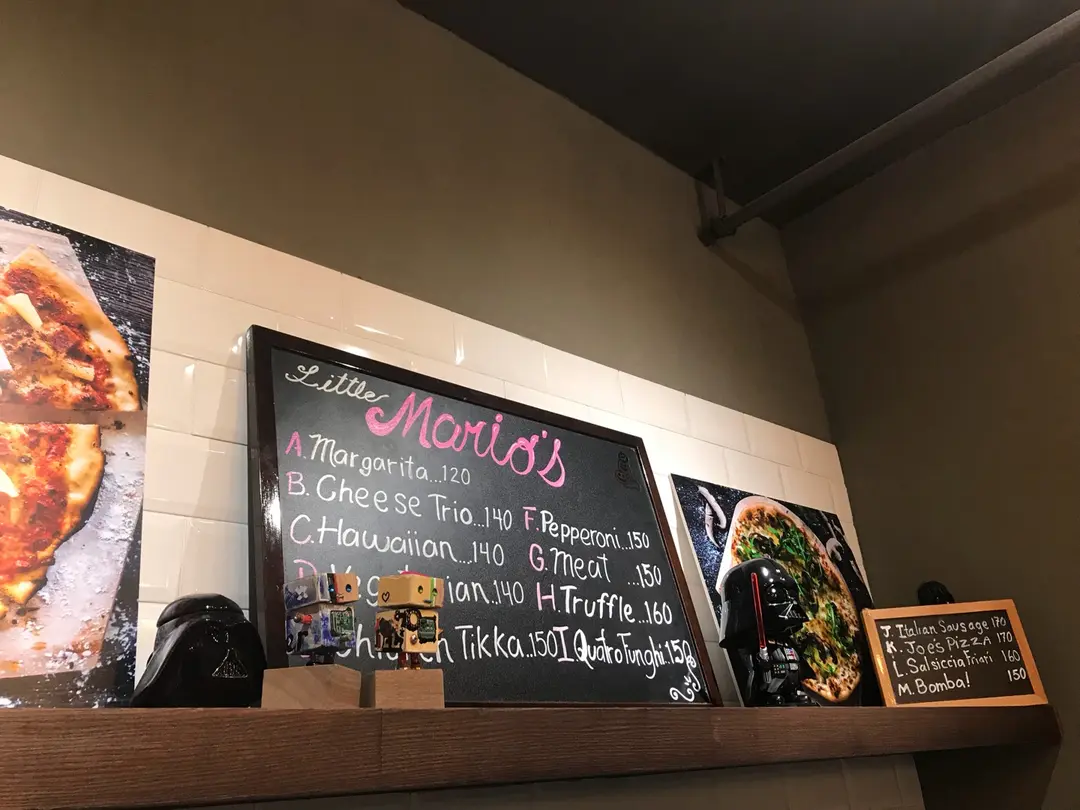 Little
Mario's
A. Margarita...120
B. Cheese Trio...140
C. Hawaiian...140
ian..140
Tikka..150
F. Pepperoni..150
G. Meat ...150
H. Truffle..160
I Quatro Funghi..150
J. Italian Sausage 170
K. Joe's Pizza 170
L. Salsiccia Friari 160
M. Bomba! 150